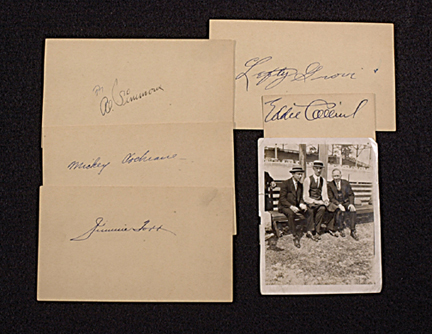 Al Simmons
Mickey Cochrane
Jimmie Foxx
Lefty Grove
Eddie Collins